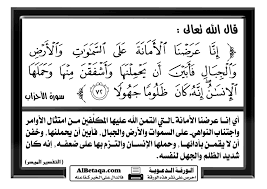 قال الله تعالى :
﴿ إِنَّا عَرَضْنَا الْأَمَانَةَ عَلَى السَّمَوَاتِ وَالْأَرْضِ
وَالْجِبَالِ فَأَبَيْنَ أَن يَحْمِلْنَهَا وَأَشْفَقْنَ مِنْهَا وَحَمَلَهَا
الْإِنسَانُ إِنَّهُ كَانَ ظَلُومًا جَهُولًا ﴿٧٢﴾ سورة الأحزاب
أي إنا عرضنا الأمانة -التي ائتمن الله عليها المكلَّفين من امتثال الأوامر
واجتناب النواهي- على السموات والأرض والجبال، فأبين أن يحملنها، وخفن
أن لا يقمن بأدائها، وحملها الإنسان والتزم بها على ضعفه، إنه كان
شديد الظلم والجهل لنفسه.
( التفسير الميسر )
الورقة الدعوية
AlBetaqa.com
الدال على الخير كفاعله